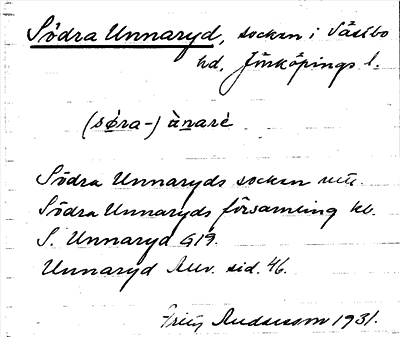 Södra Unnaryd, socken i Västbo
hd, Jönköpings l.
(søra-) ànaré
Södra Unnaryds socken
Södra Unnaryds församling kb.
S. Unnaryd G19.
Unnaryd sid. 46.
Fritz Andersson 1931.